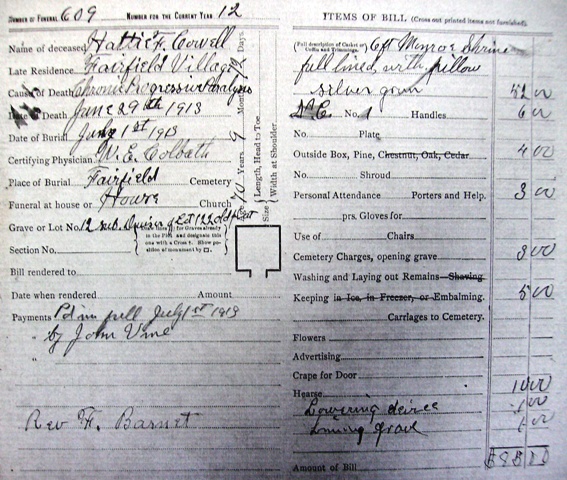 Number of Funeral 609 Number for the Current Year 12
Name of deceased Hattie F. Cowell
Late Residence Fairfield Village
Cause of Death Chronic Progressive Paralysis
Date of Death June 29th 1913
Date of Burial July 1st 1913
Certifying Physician W. E. Colbath
Place of Burial Fairfield Cemetery
Funeral at house or Howes Church
Grave or Lot No. 12 sub. Division of Lot 122 old
Section No.
Bill rendered to
Date when rendered Amount
Payments Pd in full July 1st 1913
" by John Vine
"
Rev F. Barnet
Years 9 Months 12 Days
Length, Head to Toe
Width at Shoulder
Size
ITEMS OF BILL (Cross out printed items not furnished)
(Full description of Casket or Coffin and Trimmings.) 6ft Monroe Shrine
full lined with pillow
silver gray 52 00
No. 1 Handles 6 00
No. Plate
Outside Box, Pine, Chestnut, Oak, Cedar 4 00
No. Shroud
Personal Attendance Porters and Help. 3 00
prs. Gloves for
Use of Chairs.
Cemetery Charges, opening grave 3 00
Washing and Laying out Remains Shaving
Keeping in Ice, in Freezer, or Embalming. 5 00
Carriages to Cemetery.
Flowers
Advertising
Crape for Door
Hearse 10 00
Lowering device
Lining grave
Amount of Bill